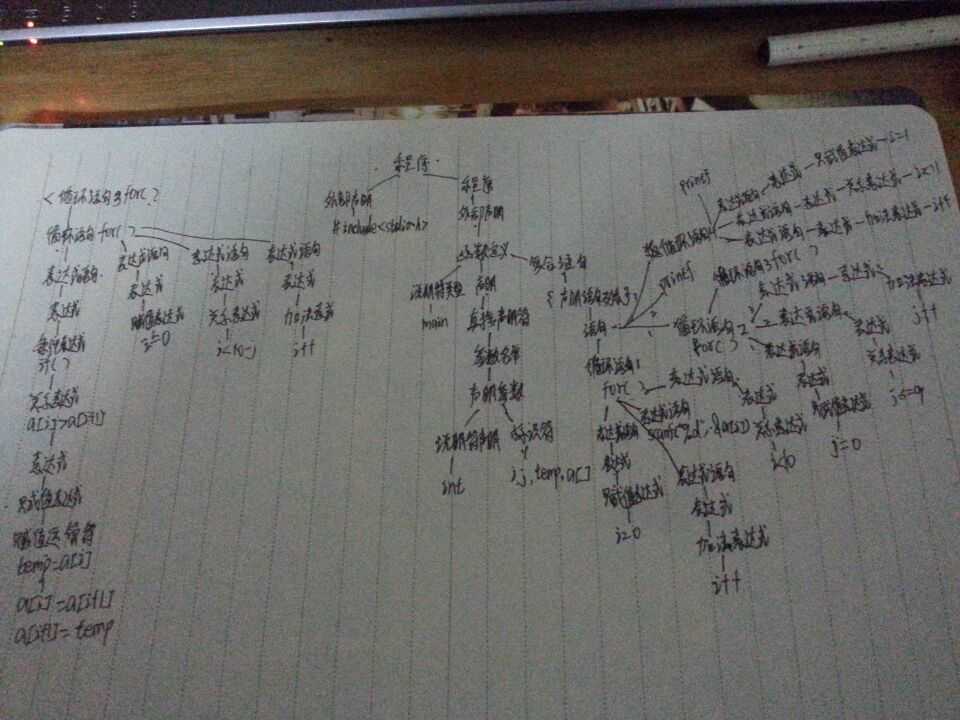 程序
外部声明
#include<stdio.h>
程序
外部声明
函数定义
说明符类型
main
声明
直接声明符
参数名单
声明参数
说明符声明
int
标识符
i,j,temp,a[]
复合语句
语句
循环语句1
for( )
表达式语句
表达式
赋值表达式
i=0
表达式语句
scanf("%d",&a[i])
表达式语句
表达式
关系表达式
i<10
表达式语句
表达式
加法表达式
i++
printf
循环语句2
for( )
循环语句3for( )
表达式语句
表达式
加法表达式
j++
表达式语句
表达式
关系表达式
j<=9
表达式语句
表达式
赋值表达式
j=0
printf
循环语句
表达式语句
表达式
赋值表达式
i=1
表达式语句
表达式
关系表达式
表达式语句
表达式
加法表达式
i++
<循环语句3for( )
循环语句for( )
表达式语句
表达式
if( )
关系表达式
a[i]>a[i+1]
表达式
赋值表达式
赋值运算符
temp=a[i]
a[i]=a[i+1]
a[i+1]=temp
表达式语句
表达式
赋值表达式
i=0
表达式语句
表达式
关系表达式
i<10-j
表达式语句
表达式
加法表达式
i++